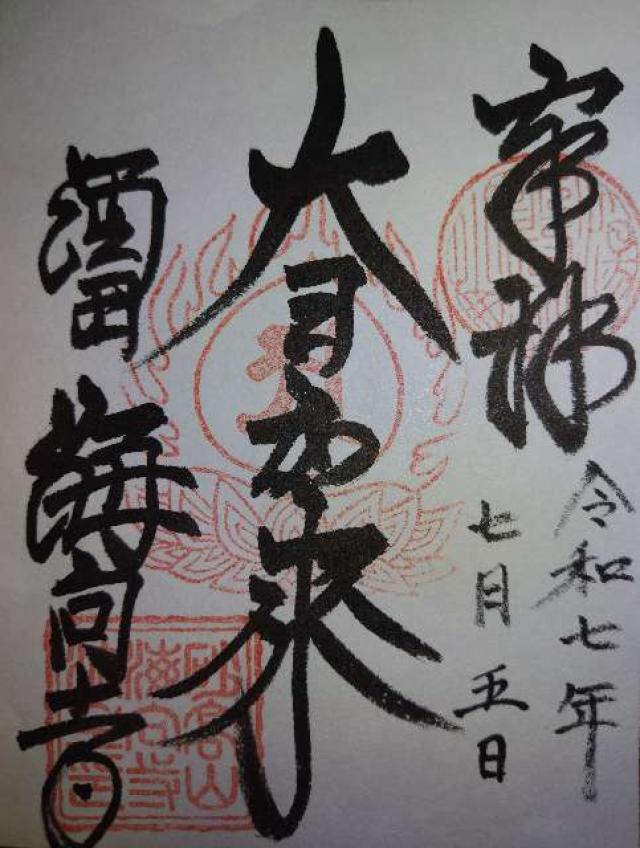 奉拝
令和七年
七月五日
大日如来
酒田 海向寺
海向寺